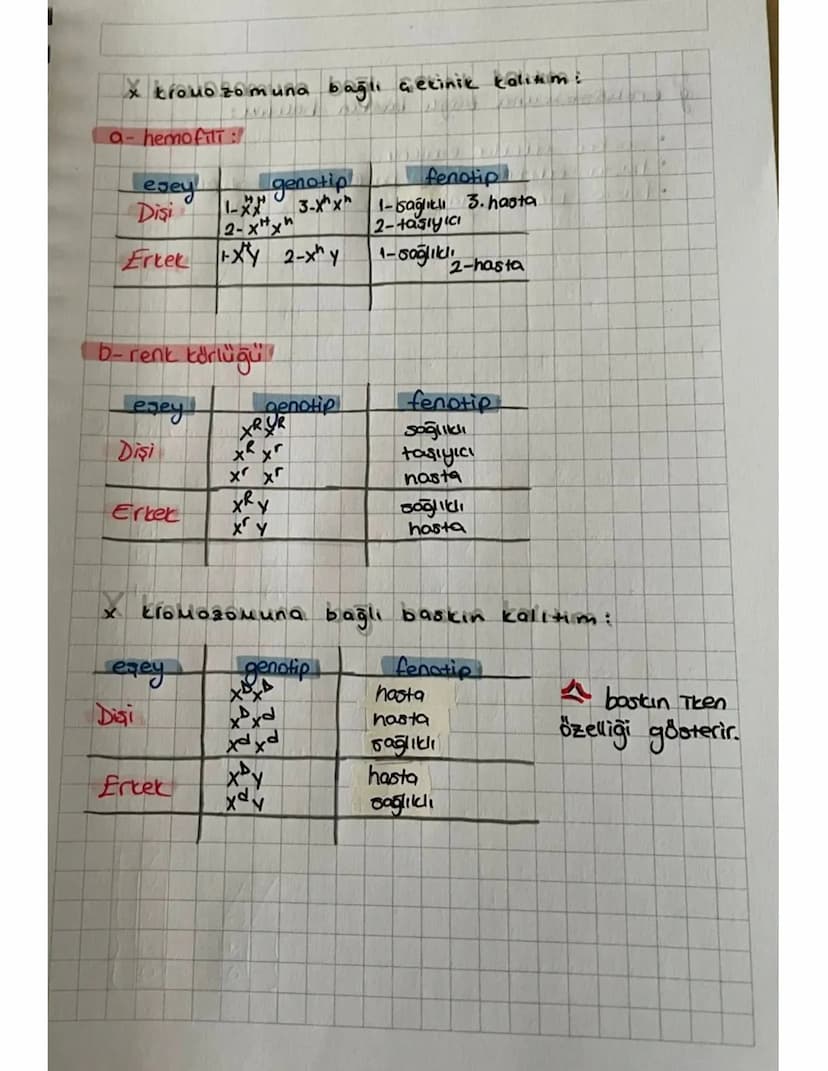 X kromozomuna bağlı çekinik kalıtım:
a- hemofili:
eşey genotip fenotip
Dişi 1- XᴴXᴴ 3- XʰXʰ 1- sağlıklı 3. hasta
2- XᴴXʰ 2- taşıyıcı
Erkek 1- XᴴY 2- XʰY 1- sağlıklı 2- hasta
b- renk körlüğü
eşey genotip fenotip
XᴿXᴿ sağlıklı
Dişi Xᴿ Xʳ taşıyıcı
Xʳ Xʳ hasta
Erkek Xᴿ Y sağlıklı
Xʳ Y hasta
X kromozomuna bağlı baskın kalıtım:
eşey genotip fenotip
XᴰXᴰ hasta
Dişi XᴰXᵈ hasta
XᵈXᵈ sağlıklı
Erkek XᴰY hasta
XᵈY sağlıklı
baskın iken
özelliği gösterir.